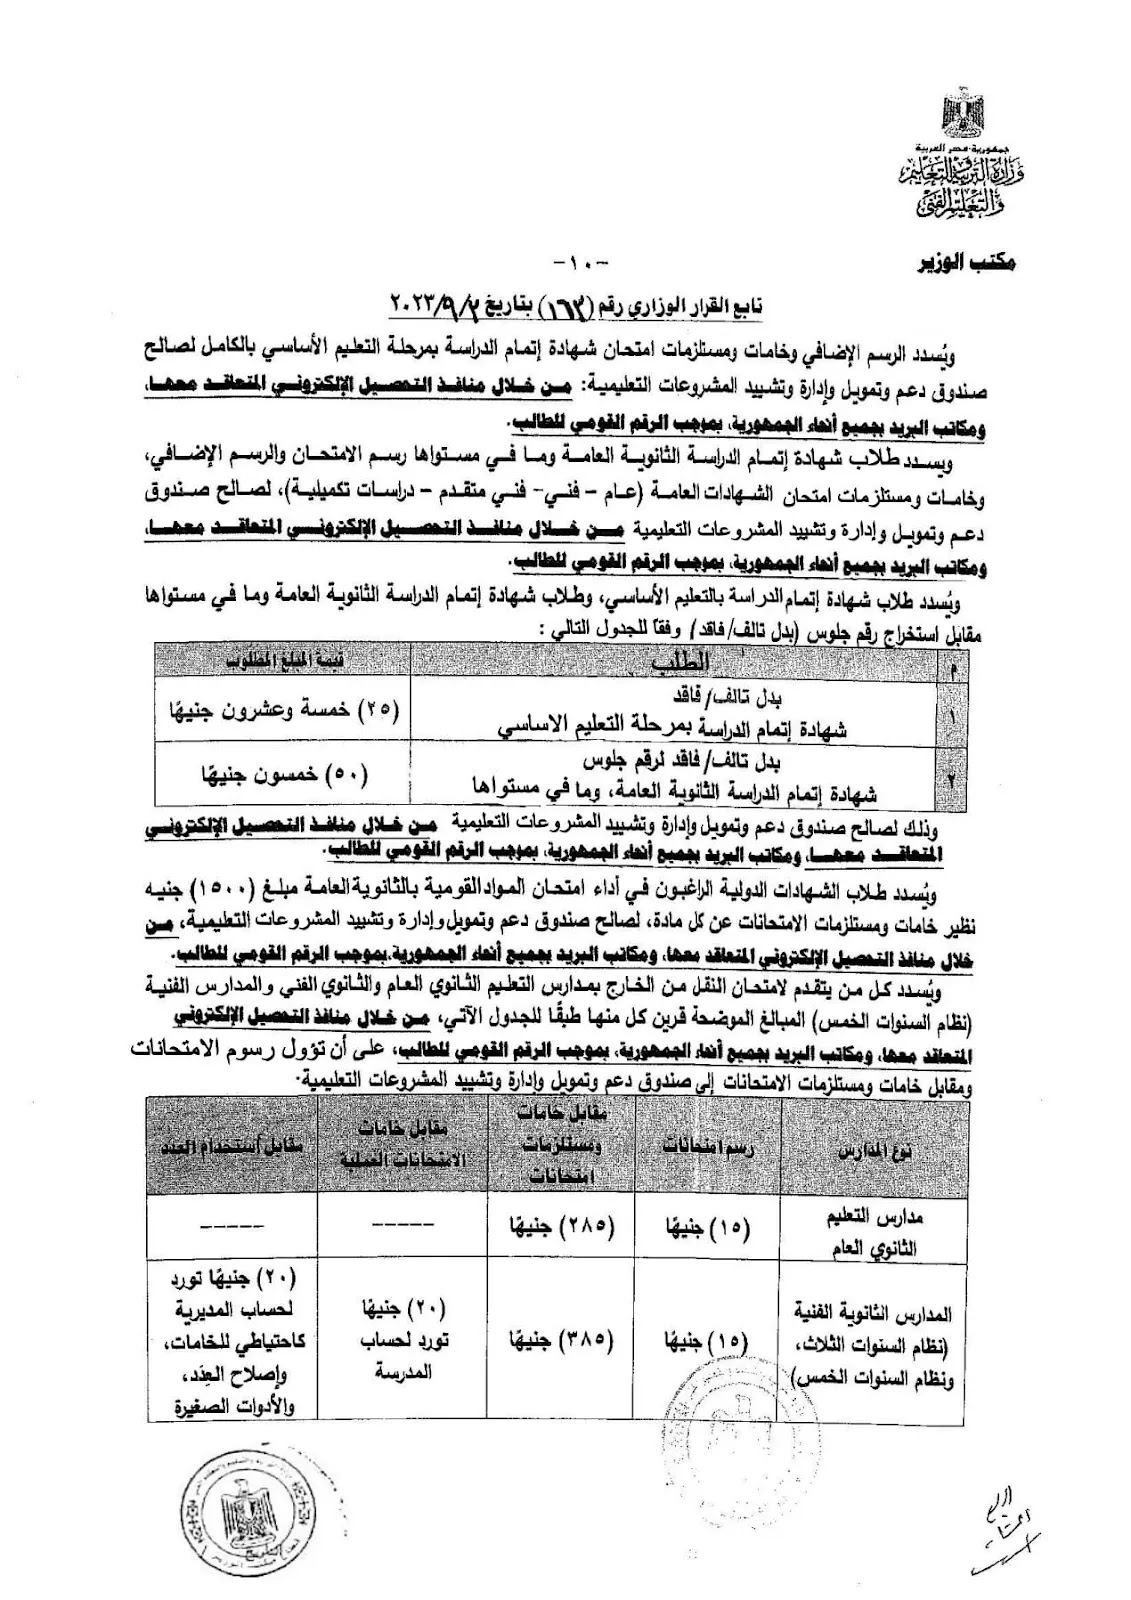 جمهورية مصر العربية
وزارة التربية والتعليم
والتعليم الفني
مكتب الوزير
-١٠-
تابع القرار الوزاري رقم (١٦٣) بتاريخ ٢٠٢٣/٩/٢
ويُسدد الرسم الإضافي وخامات ومستلزمات امتحان شهادة إتمام الدراسة بمرحلة التعليم الأساسي بالكامل لصالح
صندوق دعم وتمويل وإدارة وتشييد المشروعات التعليمية: من خلال منافذ التحصيل الإلكتروني المتعاقد معها،
ومكاتب البريد بجميع أنحاء الجمهورية، بموجب الرقم القومي للطالب.
ويسدد طلاب شهادة إتمام الدراسة الثانوية العامة وما في مستواها رسم الامتحان والرسم الإضافي،
وخامات ومستلزمات امتحان الشهادات العامة (عام – فني – فني متقدم – دراسات تكميلية)، لصالح صندوق
دعم وتمويل وإدارة وتشييد المشروعات التعليمية من خلال منافذ التحصيل الإلكتروني المتعاقد معها،
ومكاتب البريد بجميع أنحاء الجمهورية، بموجب الرقم القومي للطالب.
ويُسدد طلاب شهادة إتمام الدراسة بالتعليم الأساسي، وطلاب شهادة إتمام الدراسة الثانوية العامة وما في مستواها
مقابل استخراج رقم جلوس (بدل تالف/ فاقد) وفقًا للجدول التالي :
م الطلب قيمة المبلغ المطلوب
١ بدل تالف/ فاقد شهادة إتمام الدراسة بمرحلة التعليم الاساسي (٢٥) خمسة وعشرون جنيهًا
٢ بدل تالف/ فاقد لرقم جلوس شهادة إتمام الدراسة الثانوية العامة، وما في مستواها (٥٠) خمسون جنيهًا
وذلك لصالح صندوق دعم وتمويل وإدارة وتشييد المشروعات التعليمية من خلال منافذ التحصيل الإلكتروني
المتعاقد معها، ومكاتب البريد بجميع أنحاء الجمهورية، بموجب الرقم القومي للطالب.
ويُسدد طلاب الشهادات الدولية الراغبون في أداء امتحان المواد القومية بالثانوية العامة مبلغ (١٥٠٠) جنيه
نظير خامات ومستلزمات الامتحانات عن كل مادة، لصالح صندوق دعم وتمويل وإدارة وتشييد المشروعات التعليمية، من
خلال منافذ التحصيل الإلكتروني المتعاقد معها، ومكاتب البريد بجميع أنحاء الجمهورية، بموجب الرقم القومي للطالب.
ويُسدد كل من يتقدم لامتحان النقل من الخارج بمدارس التعليم الثانوي العام والثانوي الفني والمدارس الفنية
(نظام السنوات الخمس) المبالغ الموضحة قرين كل منها طبقًا للجدول الآتي، من خلال منافذ التحصيل الإلكتروني
المتعاقد معها، ومكاتب البريد بجميع أنحاء الجمهورية، بموجب الرقم القومي للطالب، على أن تؤول رسوم الامتحانات
ومقابل خامات ومستلزمات الامتحانات إلى صندوق دعم وتمويل وإدارة وتشييد المشروعات التعليمية.
نوع المدارس رسم امتحانات مقابل خامات ومستلزمات امتحانات مقابل خامات الامتحانات العملية مقابل استخدام العدد
مدارس التعليم الثانوي العام (١٥) جنيهًا (٢٨٥) جنيهًا ----- -----
المدارس الثانوية الفنية (نظام السنوات الثلاث، ونظام السنوات الخمس) (١٥) جنيهًا (٣٨٥) جنيهًا (٢٠) جنيهًا تورد لحساب المدرسة (٢٠) جنيهًا تورد لحساب المديرية كاحتياطي للخامات، وإصلاح العِدَد، والأدوات الصغيرة